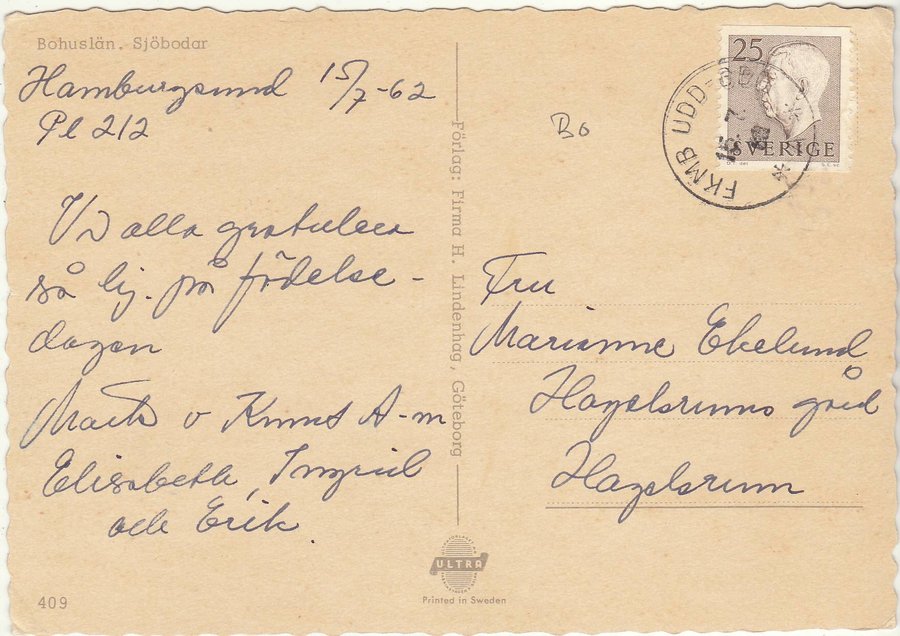 Bohuslän. Sjöbodar
Hamburgsund 15/7-62
Pl 212
Vi alla gratulera
så hj. på födelse-
dagen
Märta o Knut A-m
Elisabeth, Ingrid
och Erik.
409
Förlag: Firma H. Lindenhag, Göteborg
ULTRA
Printed in Sweden
Bo
25
SVERIGE
FKMB UDD-BDD
15. 7
Fru
Marianne Ekelund
Hagelsrums gård
Hagelsrum